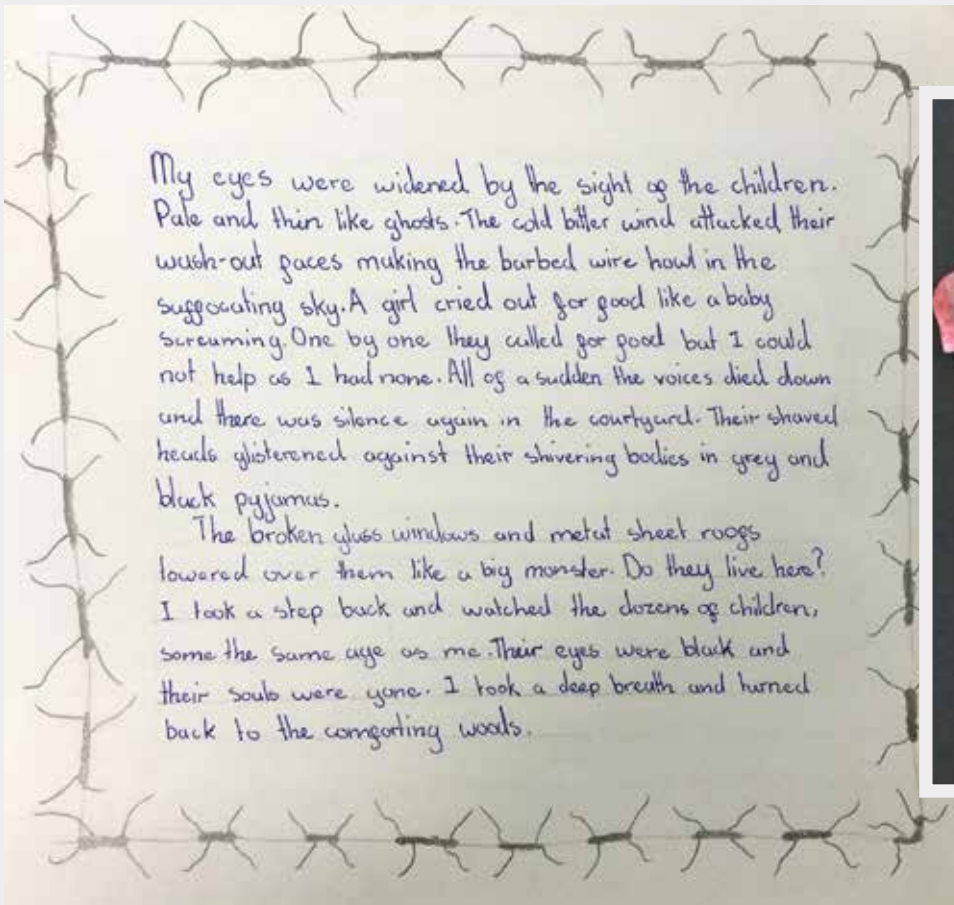 My eyes were widened by the sight of the children.
Pale and thin like ghosts. The cold bitter wind attacked their
wash-out faces making the barbed wire howl in the
suffocating sky. A girl cried out for food like a baby
screaming. One by one they called for food but I could
not help as I had none. All of a sudden the voices died down
and there was silence again in the courtyard. Their shaved
heads glisterened against their shivering bodies in grey and
black pyjamas.
The broken glass windows and metal sheet roofs
lowered over them like a big monster. Do they live here?
I took a step back and watched the dozens of children,
some the same age as me. Their eyes were black and
their souls were gone. I took a deep breath and turned
back to the comforting woods.